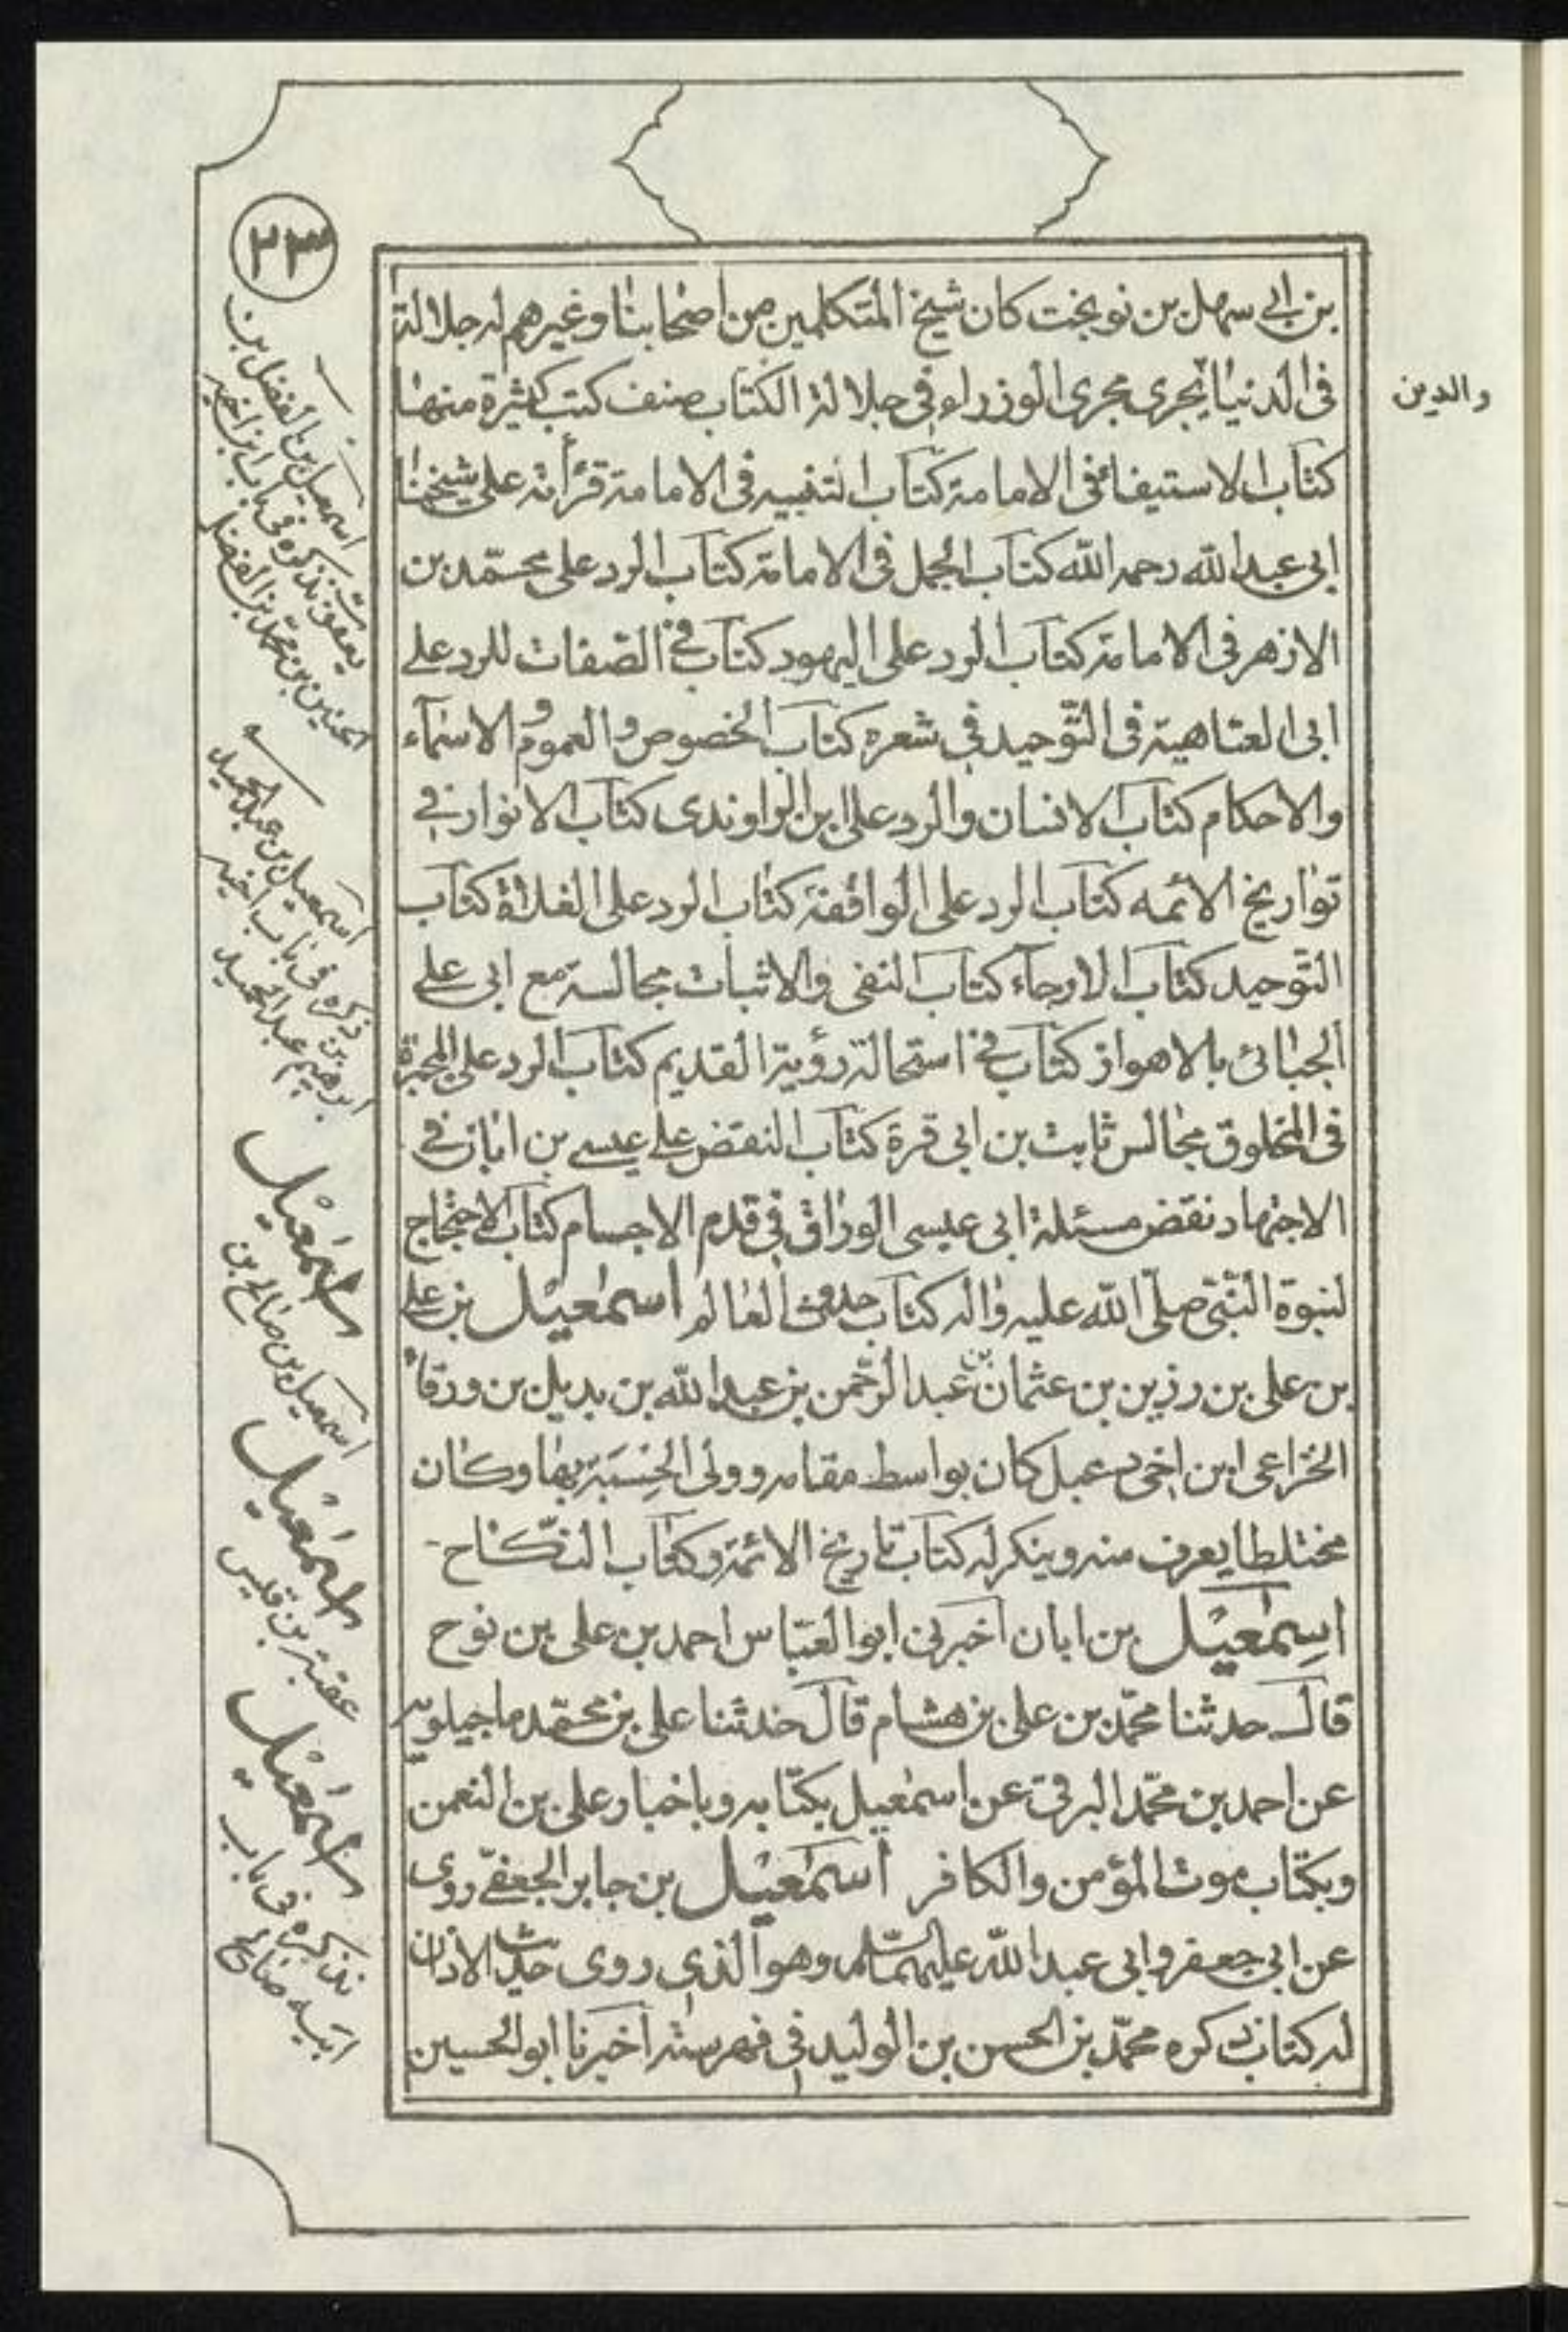 ٢٣
بن ابي سهل بن نوبخت كان شيخ المتكلمين من اصحابنا وغيرهم له جلالة
فى الدنيا يجرى مجرى الوزراء في جلالة الكتاب صنف كتب كثيرة منها
والدين
كتاب الاستيفاء فى الامامة كتاب التنبيه فى الامامة قرأته على شيخنا
ابى عبد الله رحمه الله كتاب الجمل فى الامامة كتاب الرد على محمّد بن
الازهر فى الامامة كتاب الرد على اليهود كتاب في الصّفات للرد على
ابى العتاهية فى التّوحيد في شعره كتاب الخصوص والعموم و الاسمآء
والاحكام كتاب الانسان والرد على ابن الراوندى كتاب الانوار في
تواريخ الائمه كتاب الرد على الواقفة كتاب الرد على الغلاة كتاب
التّوحيد كتاب الارجآء كتاب النفى والاثبات مجالسة مع ابى على
الجبائى بالاهواز كتاب في استحالة رؤية القديم كتاب الرد على المجبرة
فى المخلوق مجالس ثابت بن ابى قرة كتاب النقض على عيسى بن ابان في
الاجتهاد نقض مسئلة ابى عيسى الوراق في قدم الاجسام كتاب الاحتجاج
لنبوة النّبيّ صلّى الله عليه واله كتاب حدوث العالم اسمٰعيل بن على
بن على بن رزين بن عثمان بن عبد الرّحمن بن عبد الله بن بديل بن ورقاء
الخزاعى ابن اخى دعبل كان بواسط مقامه وولى الحِسبَة بها وكان
مختلطا يعرف منه وينكر له كتاب تاريخ الائمة وكتاب النّكاح
اسِمٰعيل بن ابان اخبرنى ابو العبّاس احمد بن على بن نوح
قال حدثنا محمّد بن على بن هشام قال حدثنا على بن محمّد ماجيلويه
عن احمد بن محمّد البرقى عن اسمٰعيل بكتابه وباخبار على بن النعمن
وبكتاب موت المؤمن والكافر اسمٰعيل بن جابر الجعفىّ روى
عن ابي جعفر وابى عبد الله عليهما السّلم وهو الذى روى حديث الاذان
له كتاب ذكره محمّد بن الحسن بن الوليد في فهرسته اخبرنا ابو الحسين
اسمعيل بن الفضل بن
يعقوب نذكره فى باب ابن اخيه
الحسين بن محمّد بن الفضل
اسمعيل بن عبد الحميد
ذكره فى باب اخيه
ابرهيم بن عبد الحميد
اسمٰعيل
اسمعيل بن صالح بن
اسمٰعيل
عقبة بن قيس
اسمٰعيل
نذكره فى باب
ابيه صالح